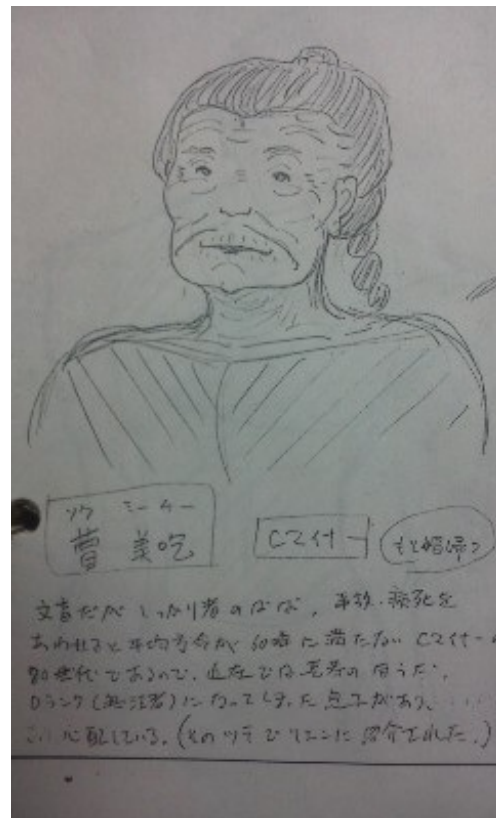 ソウ ミーケー
曹 美吃
Cマイナー
もと娼婦
文盲だが しっかり者のばば, 事故・病死を
あわせると平均寿命が 60歳に満たない Cマイナー
80世代であるので, 近在では長寿のほうだ.
Dランク(無法者)になってしまった息子があり,
心配している. (そのツテで リエンに紹介された.)